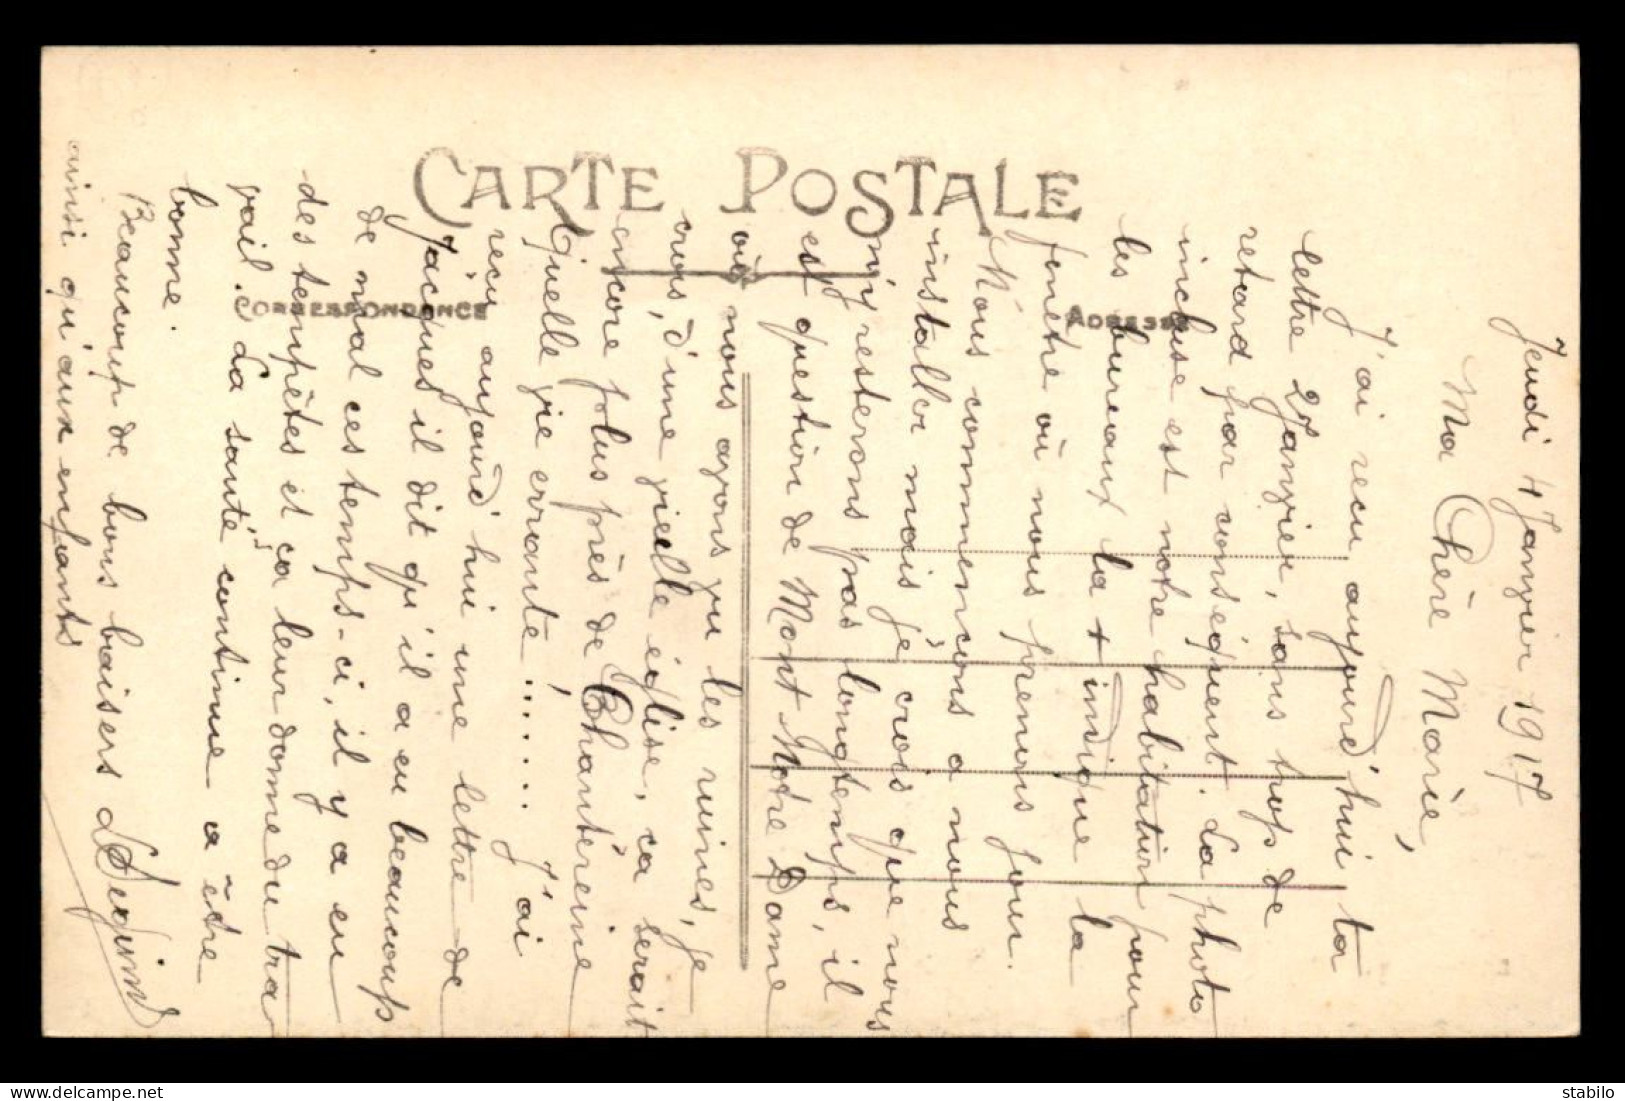 CARTE POSTALE
CORRESPONDANCE
ADRESSE
Jeudi 4 Janvier 1917
Ma Chère Marie,
J'ai reçu aujourd'hui ta
lettre 2 Janvier, sans trop de
retard par conséquent. La photo
incluse est notre habitation pour
les bureaux la + indique la
fenêtre où nous prenons jour.
Nous commençons a nous
installer mais je crois que nous
n'y resterons pas longtemps, il
est question de Mont Notre Dame
où nous avons vu les ruines, je
crois, d'une vieille église, ça serait
encore plus près de Chantereine
Quelle vie errante ...... J'ai
reçu aujourd'hui une lettre de
Jacques il dit qu'il a eu beaucoup
de mal ces temps-ci, il y a eu
des tempêtes et ça leur donne du tra
vail. La santé continue a être
bonne.
Beaucoup de bons baisers
ainsi qu'aux enfants
delcampe.net
stabilo